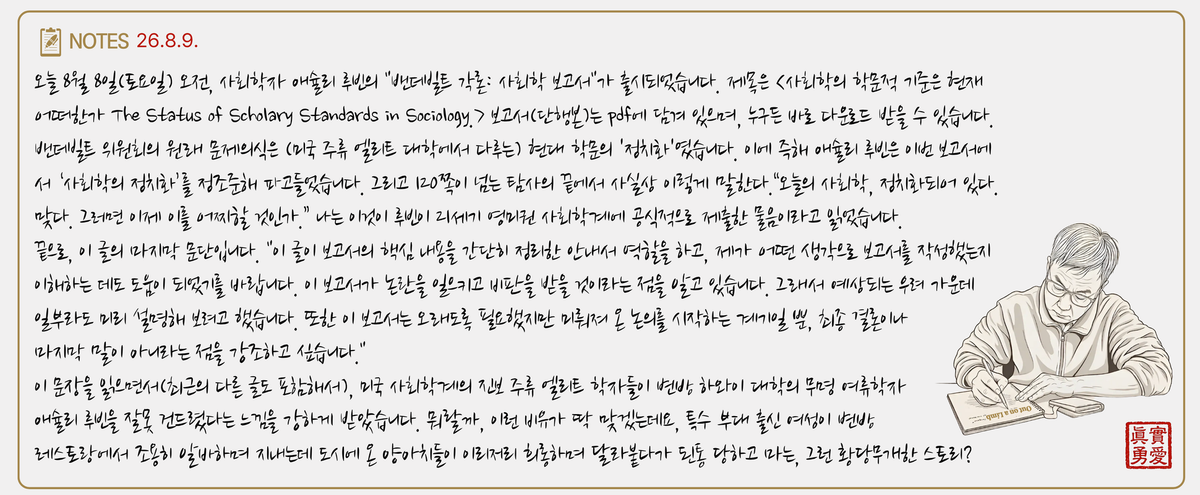 NOTES 26.8.9.
오늘 8월 8일(토요일) 오전, 사회학자 애슐리 루빈의 "밴데빌트 각론: 사회학 보고서"가 출시되었습니다. 제목은 <사회학의 학문적 기준은 현재
어떠한가 The Status of Scholary Standards in Sociology.> 보고서(단행본)는 pdf에 담겨 있으며, 누구든 바로 다운로드 받을 수 있습니다.
밴데빌트 위원회의 원래 문제의식은 (미국 주류 엘리트 대학에서 다루는) 현대 학문의 '정치화'였습니다. 이에 즉해 애슐리 루빈은 이번 보고서에
서 '사회학의 정치화'를 정조준해 파고들었습니다. 그리고 120쪽이 넘는 탐사의 끝에서 사실상 이렇게 말한다."오늘의 사회학, 정치화되어 있다.
맞다. 그러면 이제 이를 어찌할 것인가." 나는 이것이 루빈이 21세기 영미권 사회학계에 공식적으로 제출한 물음이라고 읽었습니다.
끝으로, 이 글의 마지막 문단입니다. "이 글이 보고서의 핵심 내용을 간단히 정리한 안내서 역할을 하고, 제가 어떤 생각으로 보고서를 작성했는지
이해하는 데도 도움이 되었기를 바랍니다. 이 보고서가 논란을 일으키고 비판을 받을 것이라는 점을 알고 있습니다. 그래서 예상되는 우려 가운데
일부라도 미리 설명해 보려고 했습니다. 또한 이 보고서는 오래도록 필요했지만 미뤄져 온 논의를 시작하는 계기일 뿐, 최종 결론이나
마지막 말이 아니라는 점을 강조하고 싶습니다."
이 문장을 읽으면서(최근의 다른 글도 포함해서), 미국 사회학계의 진보 주류 엘리트 학자들이 변방 하와이 대학의 무명 여류학자
애슐리 루빈을 잘못 건드렸다는 느낌을 강하게 받았습니다. 뭐랄까, 이런 비유가 딱 맞겠는데요, 특수 부대 출신 여성이 변방
레스토랑에서 조용히 알바하며 지내는데 도시에 온 양아치들이 이리저리 희롱하며 달라붙다가 된통 당하고 마는, 그런 황당무개한 스토리?
Out on a Limb
眞實
勇愛